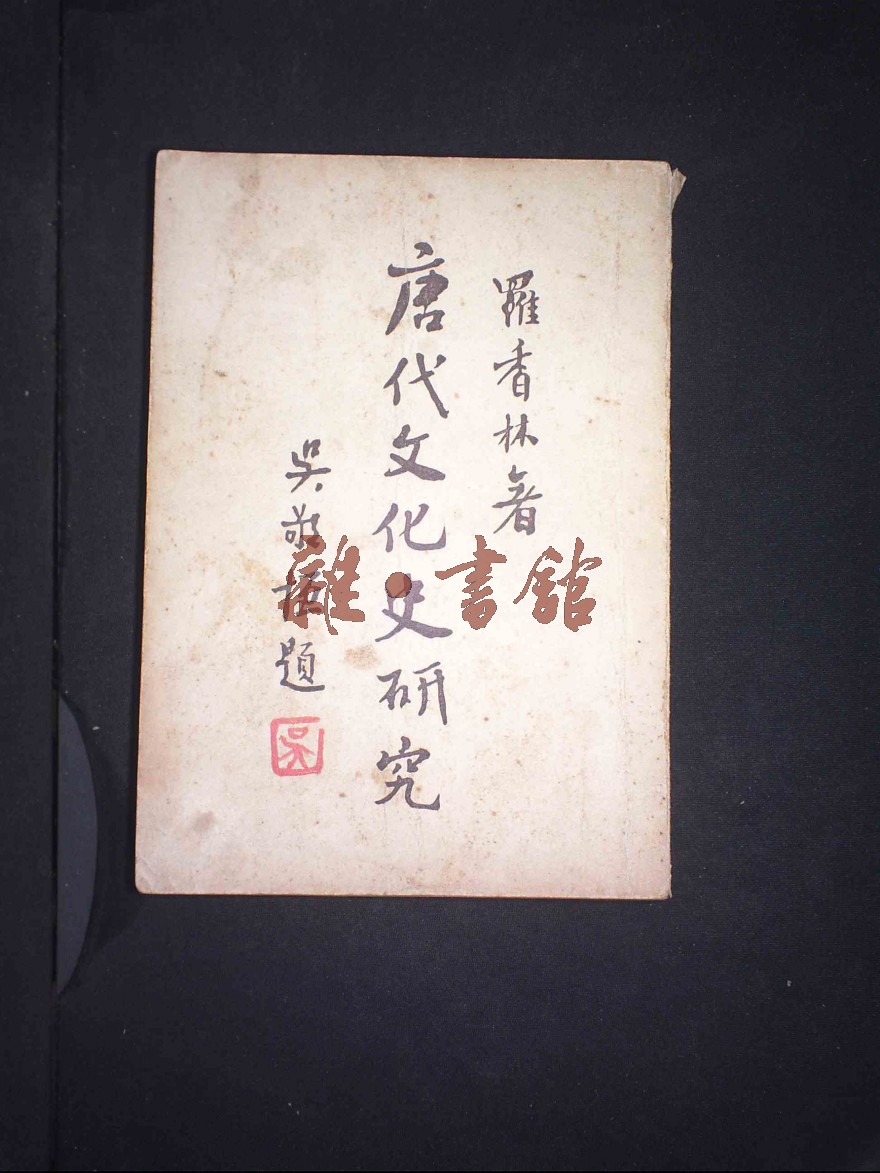 羅香林著
唐代文化史研究
吳敬恆題
吳
雜·書館